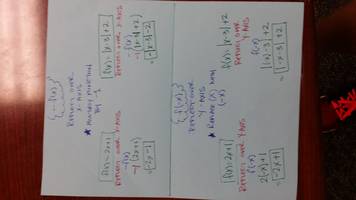 {-f(x)}
Reflect over
X-AXIS
★ Multiply function
by -1
f(x)= 2x+1
Reflect over X-AXIS
-f(x)
-1(2x+1)
= -2x-1
f(x)= |x-3|+2
Reflect over X-AXIS
-f(x)
-1(|x-3|+2)
= -|x-3|-2
{f(-x)}
Reflect over
Y-AXIS
★ Replace (x) with
(-x)
f(x)= 2x+1
Reflect over Y-AXIS
f(-x)
2(-x)+1
= -2x+1
f(x)= |x-3|+2
Reflect over
Y-AXIS
f(-x)
|(-x)-3|+2
= |-x-3|+2